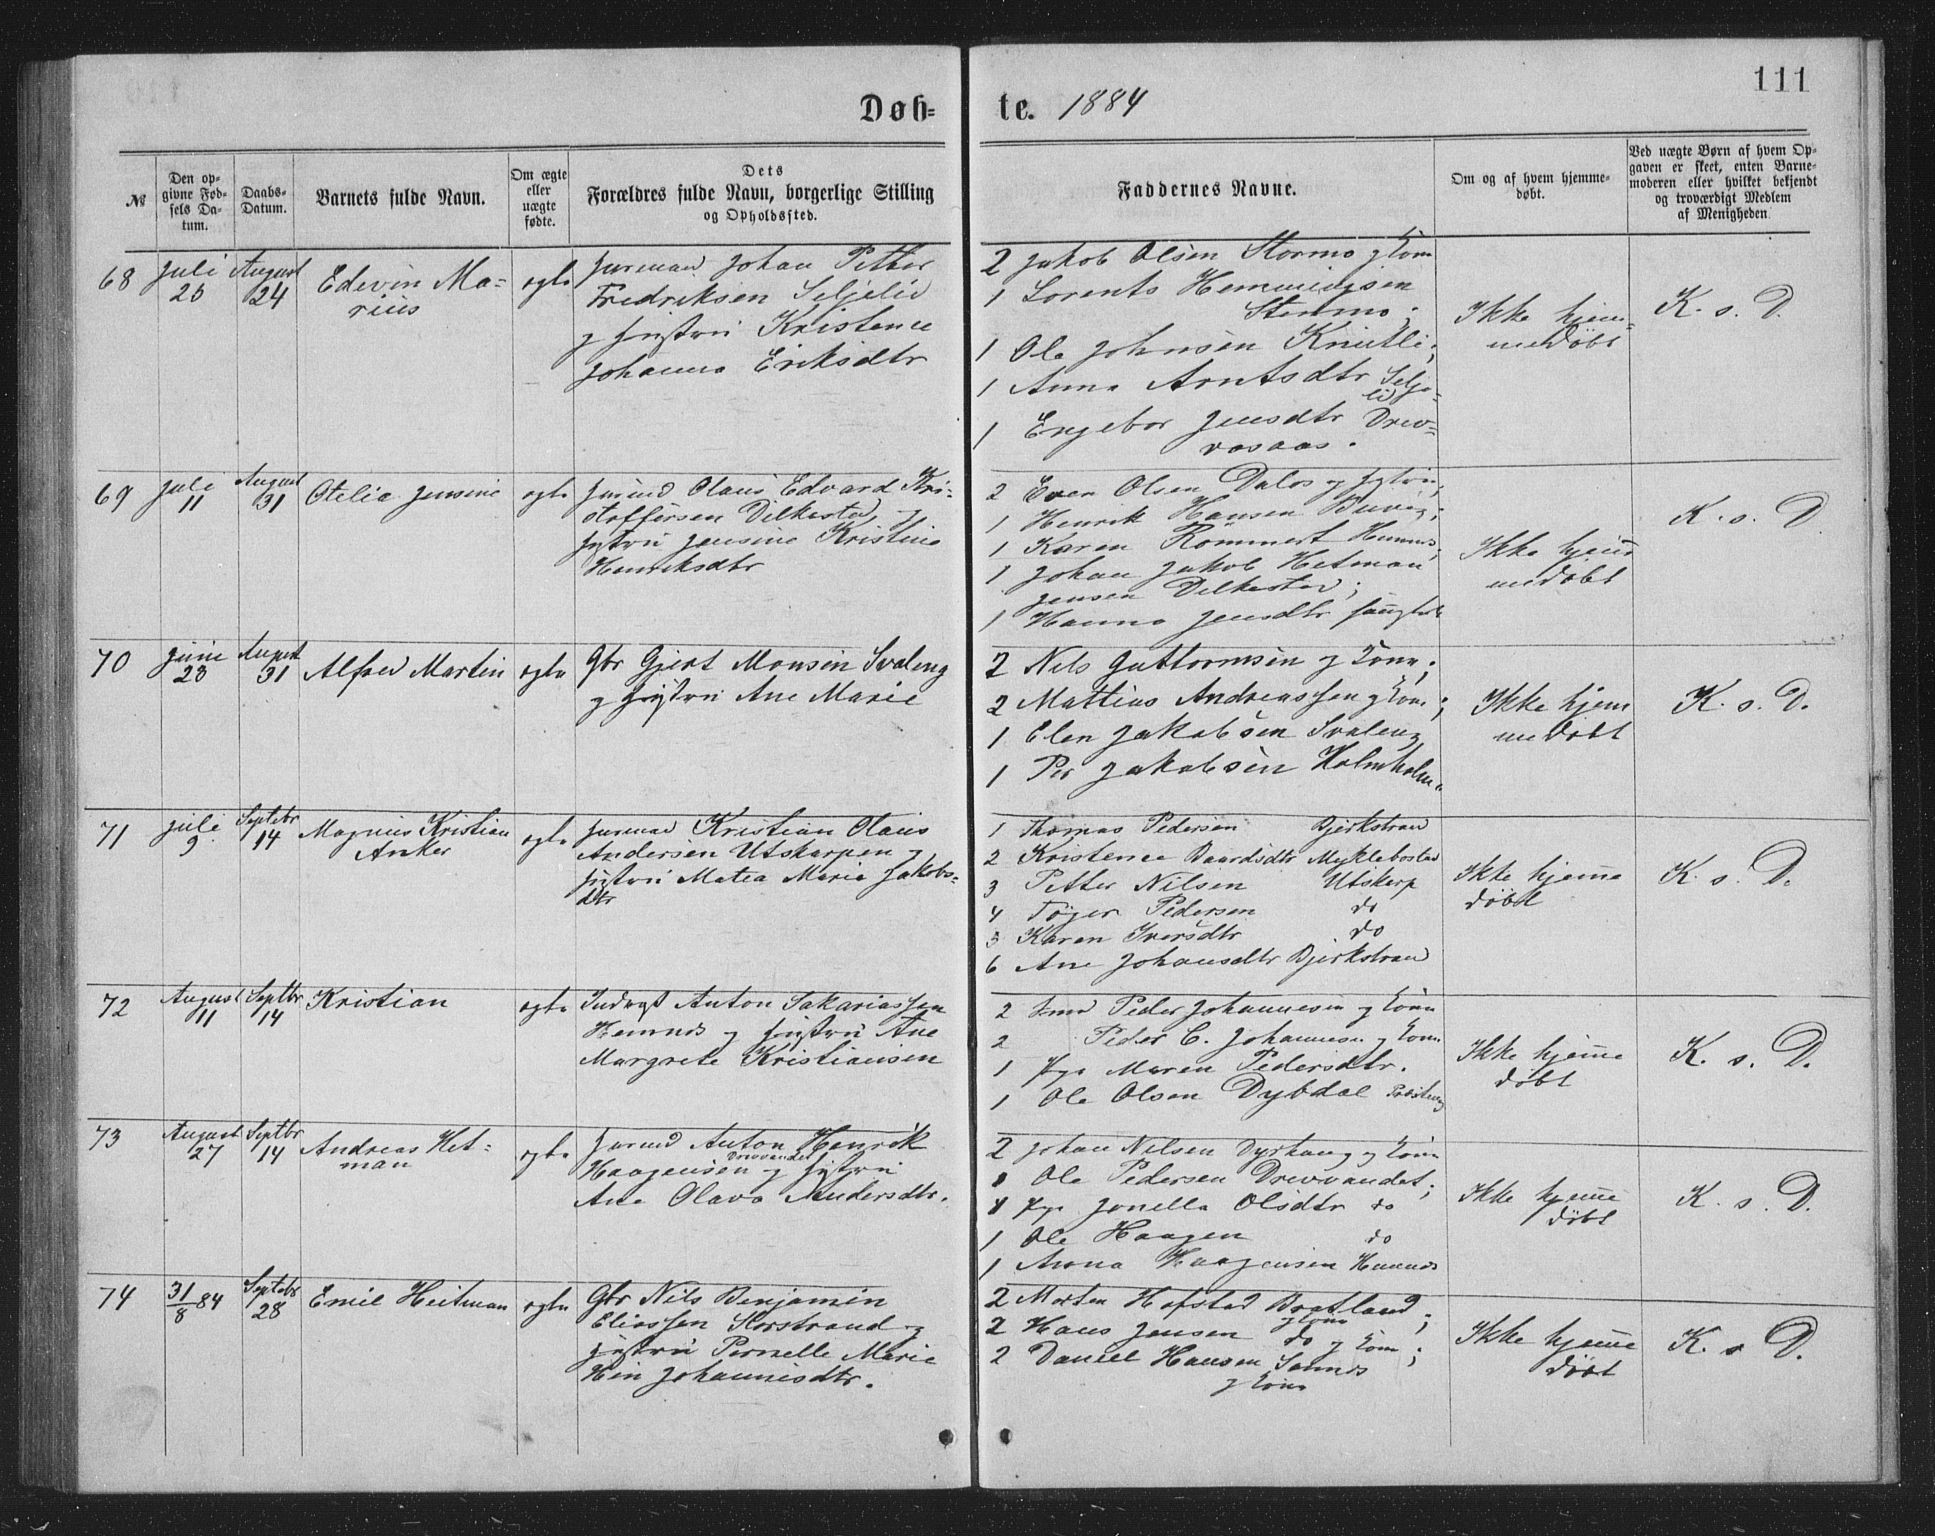 111
Døb= te. 1884
№
Den op=
givne Fød=
sels Da=
tum.
Daabs=
Datum.
Barnets fulde Navn.
Om ægte
eller
uægte
fødte.
Dets
Forældres fulde Navn, borgerlige Stilling
og Opholdssted.
Faddernes Navne.
Om og af hvem hjemme=
døbt.
Ved uægte Børn af hvem Op=
gaven er skeet, enten Barne=
moderen eller hvilket bekjendt
og troværdigt Medlem
af Menigheden
68
Juli
26
August
24
Edevin Ma=
rius
ægte
Johan Petter
Fredriksen Seljelid
g hustru Kristence
Johanna Eriksdtr
2 Jakob Olsen Stormo g Kone
1 Lorents Hemmingsen
Stormo;
1 Ole Johnsen Knutli;
1 Anna Arntsdtr Selje=
lid
1 Engebor Jensdtr Drev=
vasaas.
Ikke hjem=
medøbt
K. s. D.
69
Juli
11
August
31
Otelia Jensine
ægte
Olaus Edvard Kri=
stoffersen Dilkestad g
hustru Jensine Kristine
Henriksdtr
2 Even Olsen Dalos g hustru;
1 Henrik Hansen
1 Karen Rømmert Hemnes;
1 Johan Jakob Hetman
Jensen Dilkestad;
1 Hanna Jensdtr
Ikke hjem
medøbt
K. s. D
70
Juni
23
August
31
Alfred Martin
ægte
Gbr Gjert Monsen Svaleng
g hustru Ane Marie
2 Nils Guttormsen g Kone;
2 Mattias Andreassen g Kone;
1 Elen Jakobsen Svaleng
1 Per Jakobsen Holmholm
Ikke hjem
medøbt
K. s. D.
71
Juli
9
Septbr
14
Magnus Kristian
Anker
ægte
Kristian Olaus
Andersen Utskarpen g
hustru Matea Marie Jakobs=
dtr
1 Thomas Pedersen Bjerkstrand
2 Kristence Baardsdtr Myklebostad
3 Petter Nilsen Utskarp
4 Tøger Pedersen do
5 Karen Iversdtr do
6 Ane Johansdtr Bjerkstrand
Ikke hjemme
døbt
K. s. D.
72
August
11
Septbr
14
Kristian
ægte
Indrgst Anton Sakariassen
Hemnes g hustru Ane
Margrete Kristiansen
2 Peder Johannesen g Kone
2 Peder C. Johannesen g Kone
1 Pge Maren Pedersdtr.
1 Ole Olsen Dybdal
Ikke hjemme
døbt
K. s. D.
73
August
27
Septbr
14
Andreas Het=
man
ægte
Anton Henrik
Haagensen Drevvandet g hustru
Ane Olava Andersdtr.
2 Johan Nilsen Dyrhaug g Kone
1 Ole Pedersen Drevvandet;
1 Pge Jonella Olsdtr do
1 Ole Haagen do
1 Anna Haagensen Hemnes
Ikke hjemme
døbt
K. s. D.
74
31/8 84
Septbr
28
Emil Heitman
ægte
Gbr Nils Benjamin
Eliassen Storstrand g
hustru Pernelle Marie
Hin Johannesdtr.
2 Morten Hofstad Bratland
g Kone;
2 Hans Jensen do g Kone;
2 Daniel Hansen Sannes
g Kone
Ikke hjemme
døbt
K. s D.